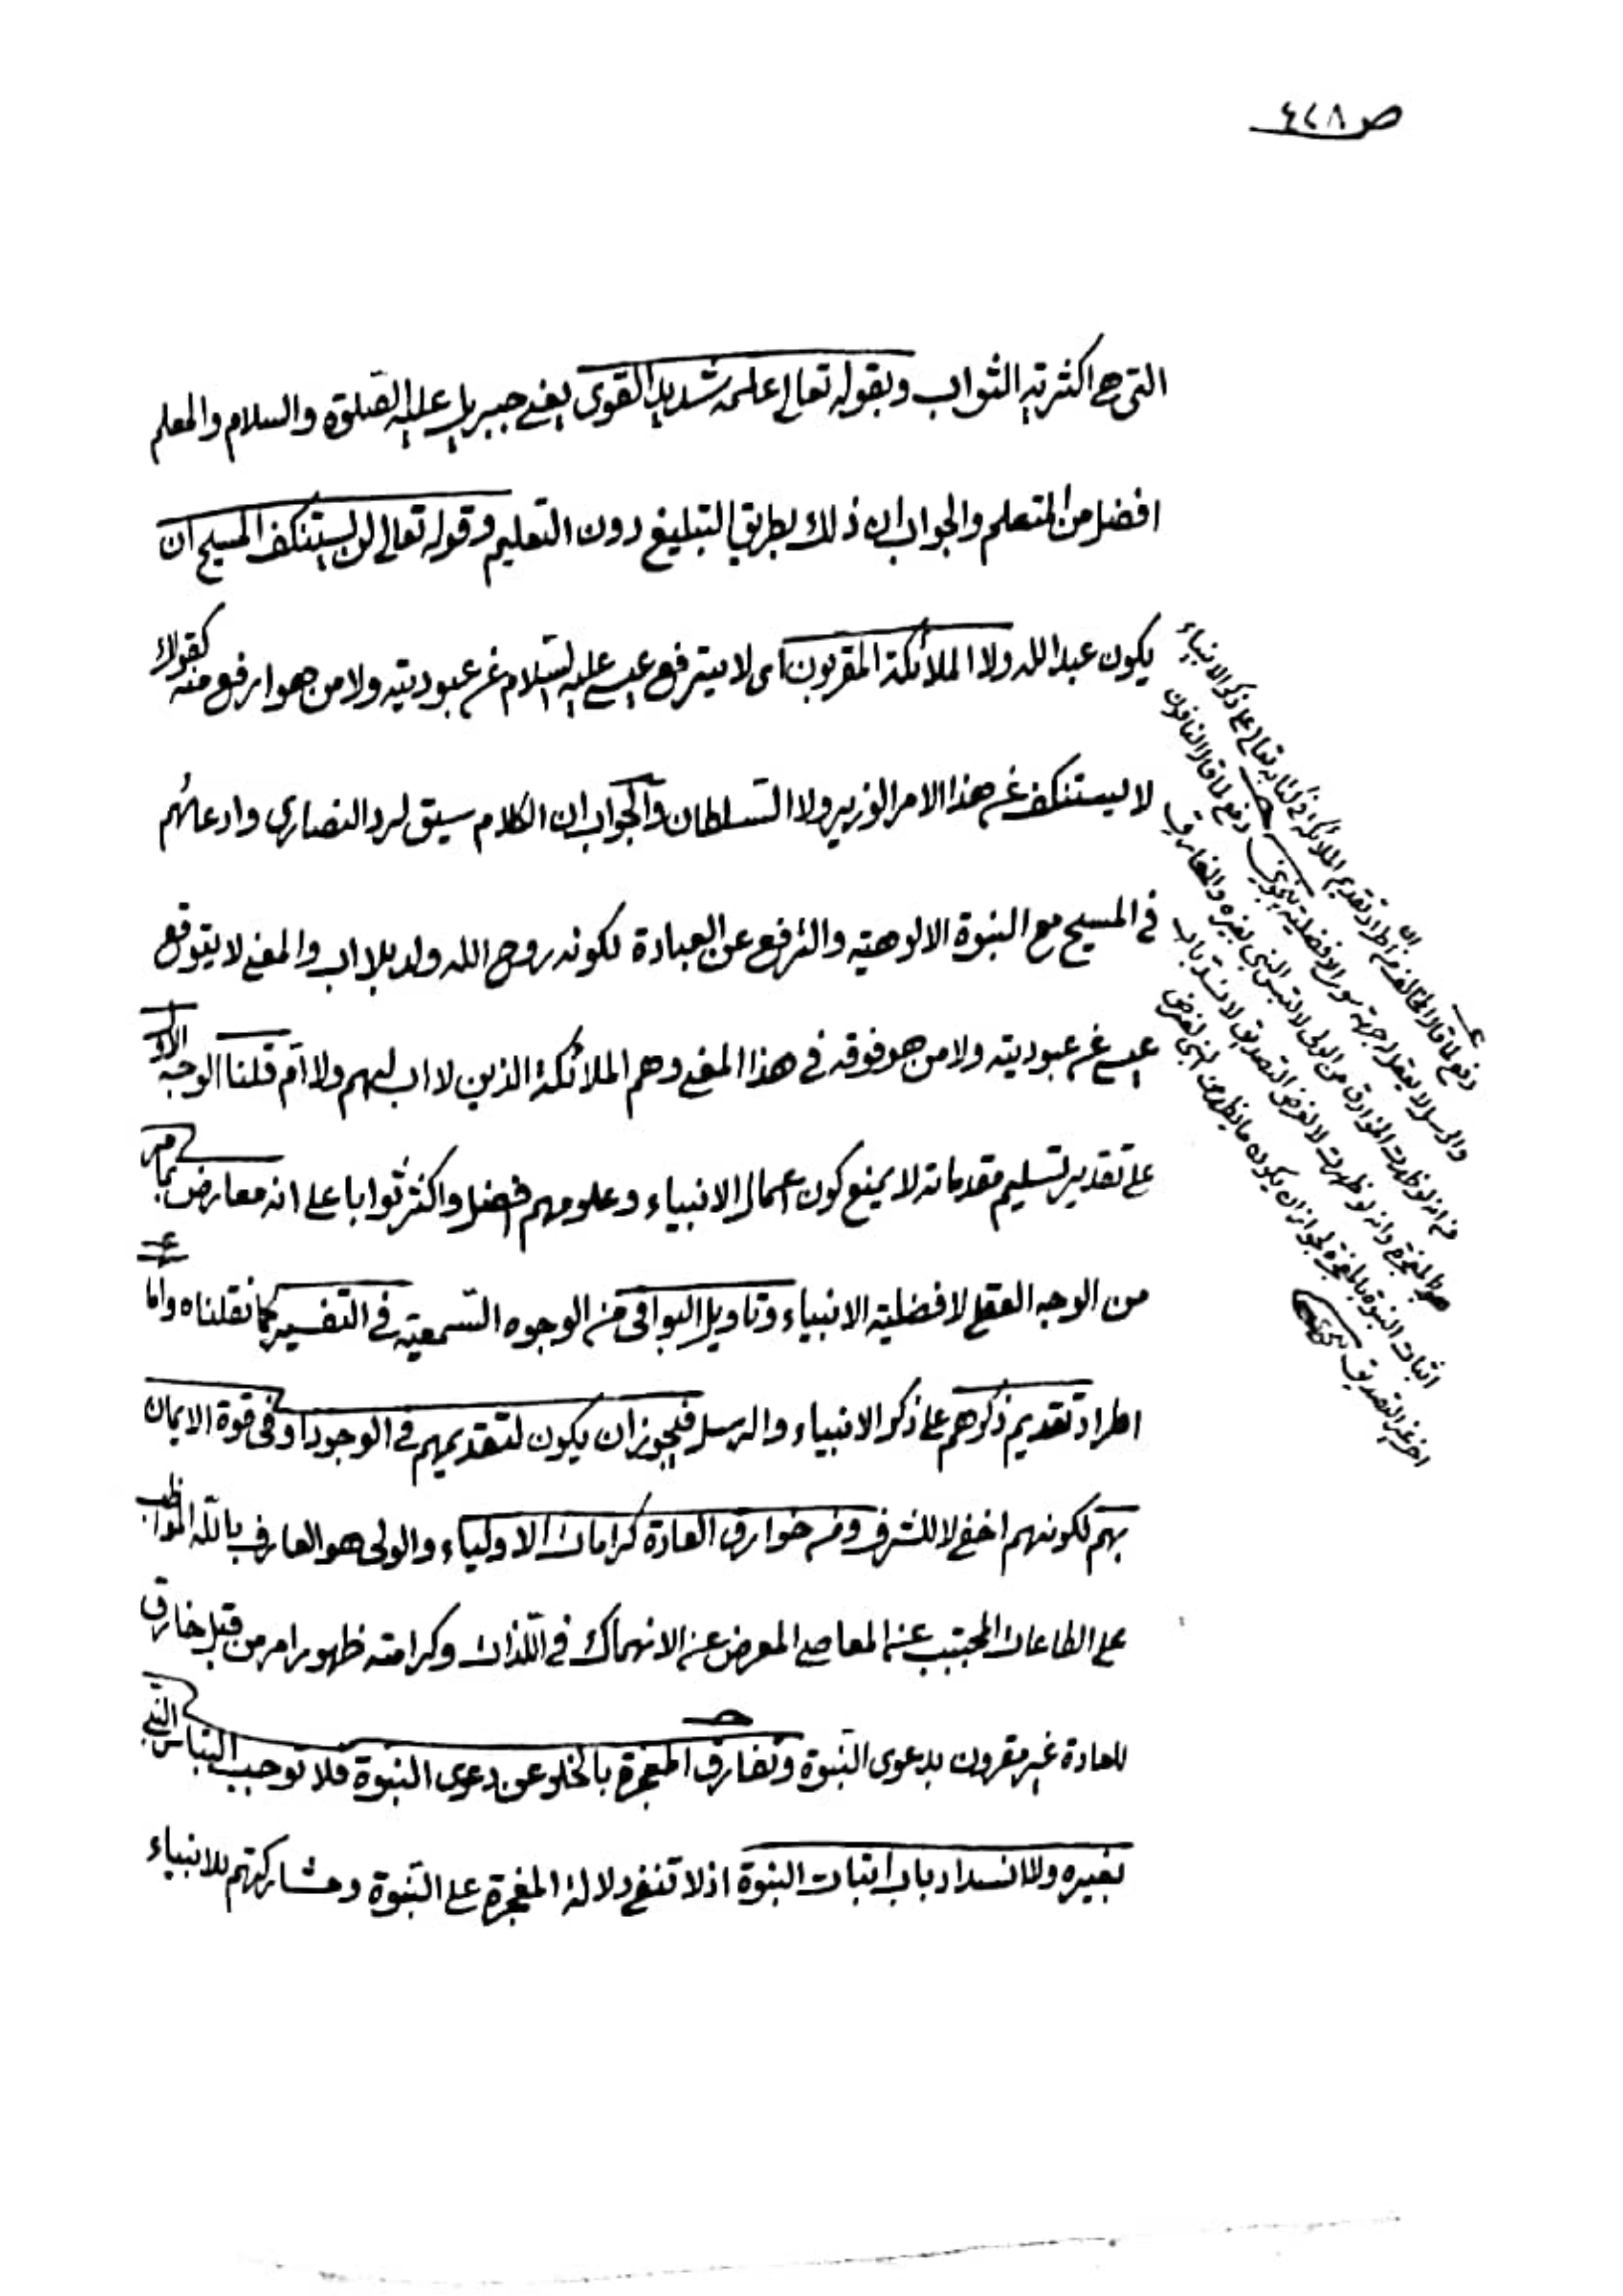 ص ٤٢٨
التى هى اكثرية الثواب وبقوله تعالى علمه شديد القوى يعنى جبريل عليه الصلوة والسلام والمعلم
افضل من المتعلم والجواب ان ذلك بطريق التبليغ دون التعليم وقوله تعالى لن يستنكف المسيح ان
يكون عبدا لله ولا الملائكة المقربون اى لا يترفع عيسى عليه السلام عن عبوديته ولا من هو ارفع منه كقولك
لا يستنكف عن هذا الامر الوزير ولا السلطان والجواب ان الكلام سيق لرد النصارى وادعائهم
فى المسيح مع النبوة الالوهية والترفع عن العبادة لكونه روح الله ولد بلا اب والمعنى لا يترفع
عيسى عن عبوديته ولا من هو فوقه فى هذا المعنى وهم الملائكة الذين لا اب لهم ولا ام قلنا الوجه الاول
على تقدير تسليم مقدماته لا يمنع كون اعمال الانبياء وعلومهم افضل واكثر ثوابا على انه معارض بما مر
من الوجه العقلى لافضلية الانبياء وتاويل البواقى من الوجوه السمعية فى التفسير كما نقلناه واما
اطراد تقديم ذكرهم على ذكر الانبياء والرسل فيجوز ان يكون لتقديمهم فى الوجود او فى قوة الايمان
بهم لكونهم اخفى لا للشرف ومن خوارق العادة كرامات الاولياء والولى هو العارف بالله المواظب
على الطاعات المجتنب عن المعاصى المعرض عن الانهماك فى اللذات وكرامته ظهور امر من قبل خارق
للعادة غير مقرون بدعوى النبوة وتفارق المعجزة بالخلو عن دعوى النبوة فلا توجب التباس النبى
بغيره ولا انسداد باب اثبات النبوة اذ لا تنفى دلالة المعجزة على النبوة ومشاركتهم للانبياء
دفع لما قال المخالف من ان اطراد تقديم الملائكة فى كتابه تعالى على ذكر الانبياء
والرسل لا يعقل له جهة سوى الافضلية دفع لما قال النافون
من انه لو ظهرت الخوارق من الولى لالتبس النبى بغيره والفارق
هو المعجزة وانه لو ظهرت لا لغرض التصديق لانسد باب
اثبات النبوة بالمعجزة لجواز ان يكون ما يظهر من النبى لغرض
اخر غير التصديق